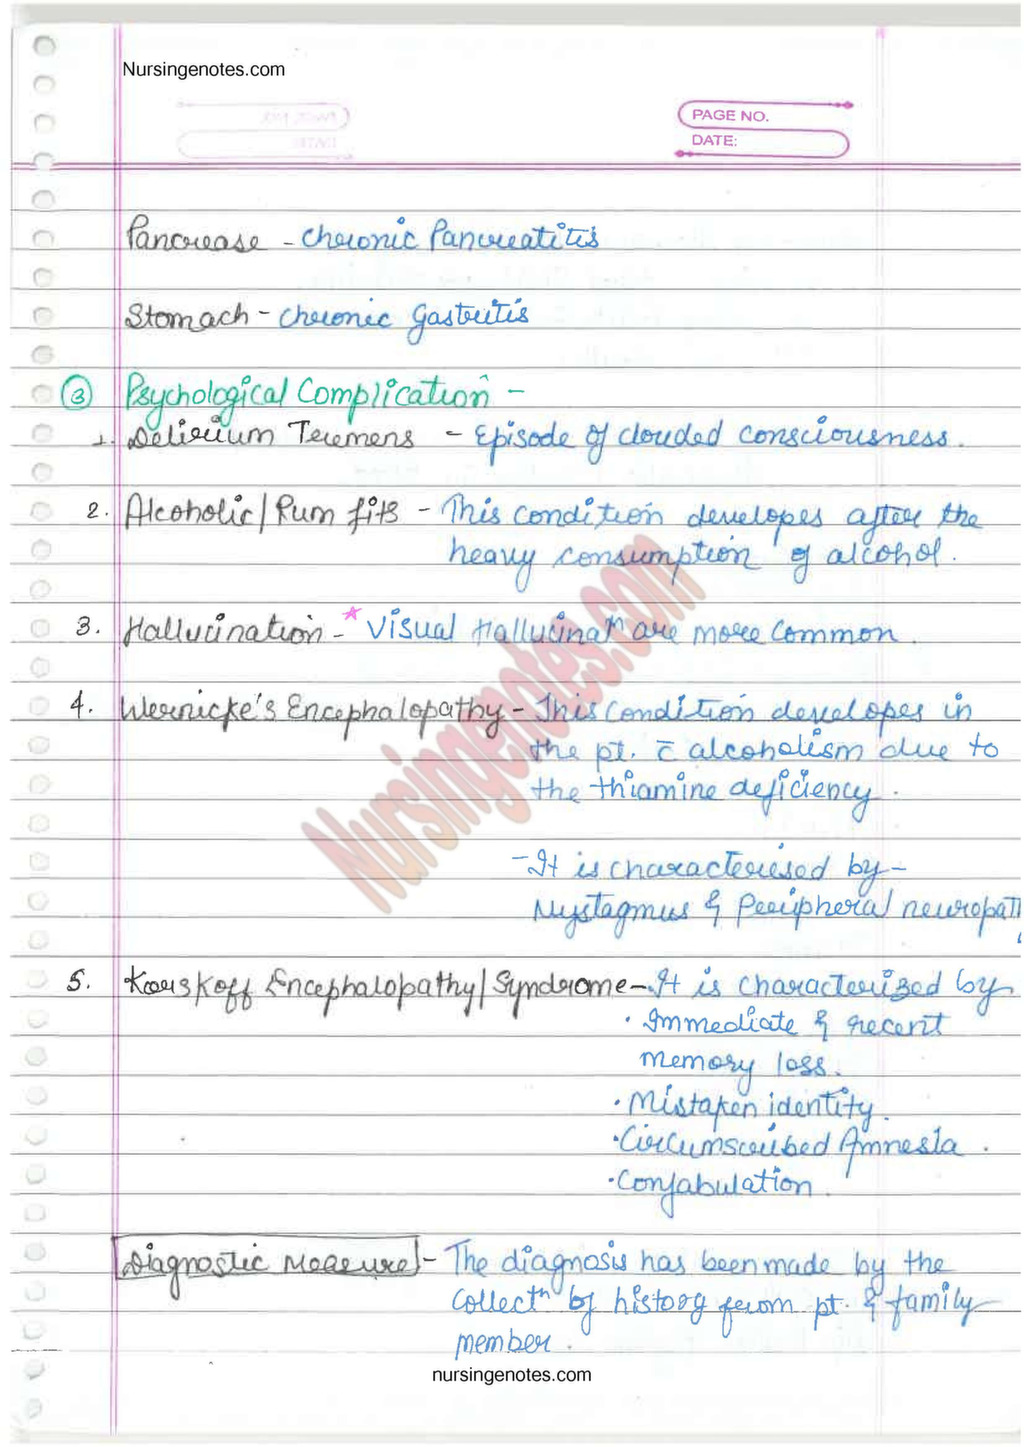 Nursingenotes.com
PAGE NO.
DATE:
Pancrease - Chronic Pancreatitis
Stomach - Chronic Gastritis
③ Psychological Complication -
1. Delirium Tremens - Episode of clouded consciousness.
2. Alcoholic/Rum fits - This condition developes after the
heavy consumption of alcohol.
3. Hallucination - * Visual Hallucinatn are more common.
4. Wernicke's Encephalopathy - This condition developes in
the pt. c̄ alcoholism due to
the thiamine deficiency.
- It is characterised by -
Nystagmus & Peripheral neuropath
5. Korskoff Encephalopathy/Syndrome - It is characterized by
• Immediate & recent
memory loss.
• Mistaken identity.
• Circumscribed Amnesia.
• Confabulation.
Diagnostic Measure - The diagnosis has been made by the
collectn of history from pt. & family
member.
Nursingenotes.com
nursingenotes.com